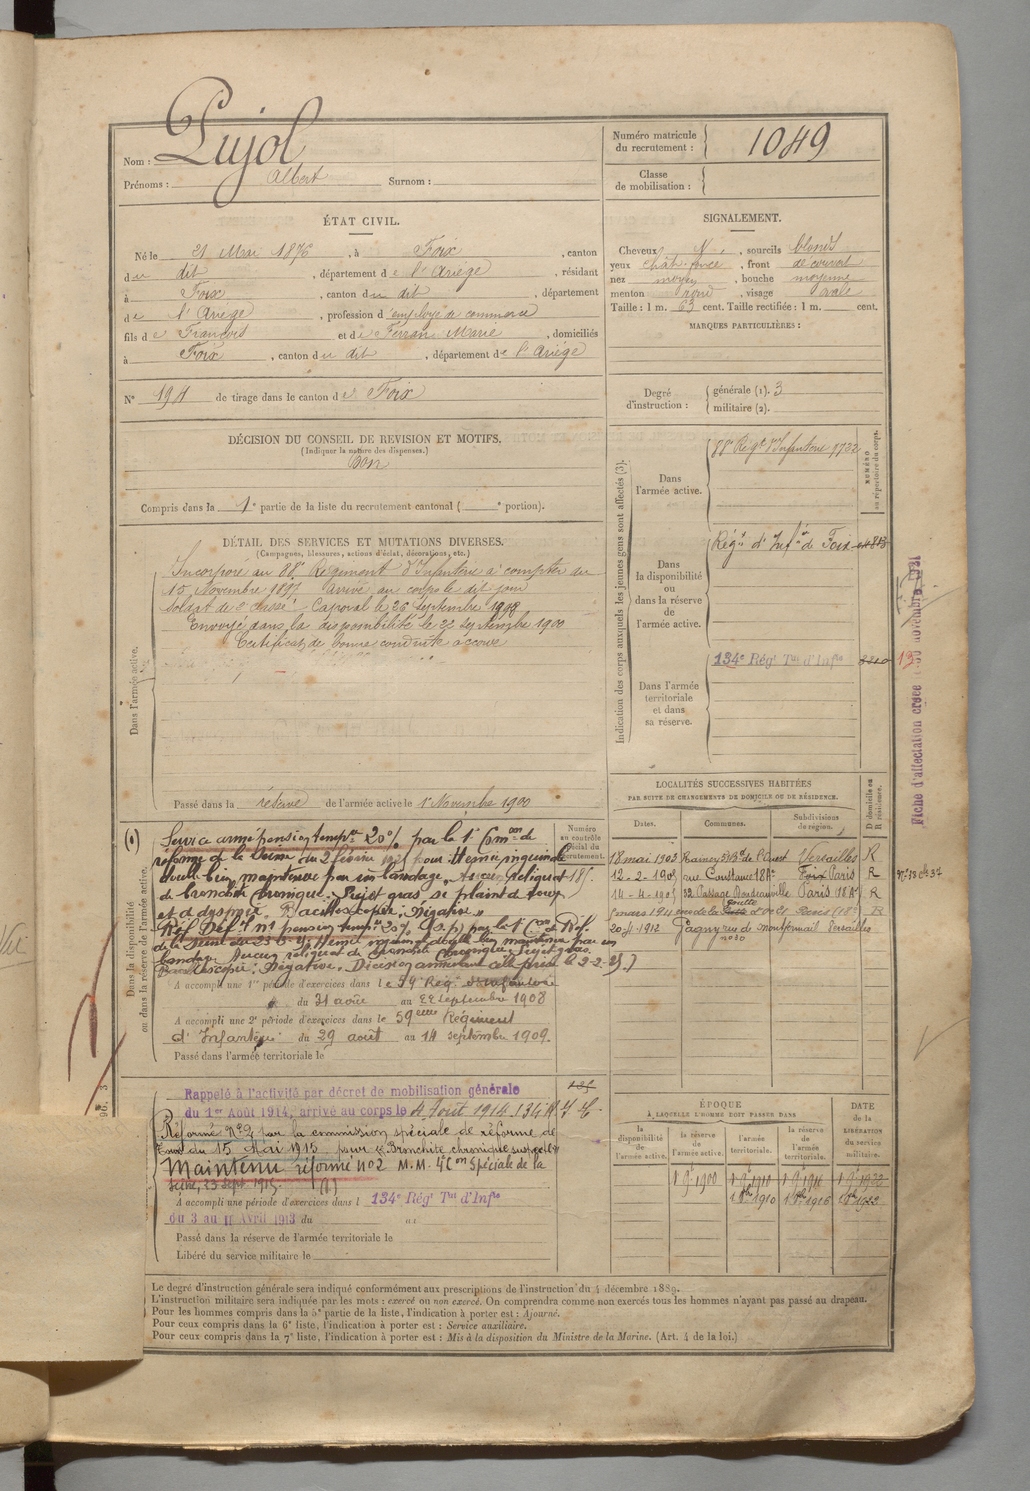 Nom : Pujol
Prénoms : Albert Surnom :
Numéro matricule
du recrutement : 1049
Classe
de mobilisation :
ÉTAT CIVIL.
Né le 21 Mai 1876, à Foix, canton
du dit, département de l'Ariège, résidant
à Foix, canton du dit, département
de l'Ariège, profession d'employé de commerce
fils de François et de Ferran Marie, domiciliés
à Foix, canton du dit, département de l'Ariège
N° 191 de tirage dans le canton de Foix
SIGNALEMENT.
Cheveux N, sourcils blonds
yeux chât. foncé, front découvert
nez moyen, bouche moyenne
menton rond, visage ovale
Taille : 1 m. 63 cent. Taille rectifiée : 1 m. cent.
MARQUES PARTICULIÈRES :
Degré
d'instruction :
générale (1). 3
militaire (2).
DÉCISION DU CONSEIL DE REVISION ET MOTIFS.
(Indiquer la nature des dispenses.)
Bon
Compris dans la 1e partie de la liste du recrutement cantonal ( e portion).
DÉTAIL DES SERVICES ET MUTATIONS DIVERSES.
(Campagnes, blessures, actions d'éclat, décorations, etc.)
Dans l'armée active.
Incorporé au 88e Régiment d'Infanterie à compter du
15 Novembre 1897 Arrivé au corps le dit jour
Soldat de 2e classe. Caporal le 26 Septembre
Envoyé dans la disponibilité le 22 septembre 1900
Certificat de bonne conduite accordé
Passé dans la réserve de l'armée active le 1er Novembre 1900
Indication des corps auxquels les jeunes gens sont affectés (3).
NUMÉRO
au répertoire du corps.
Dans
l'armée active.
88e Régt d'Infanterie 7732
Dans
la disponibilité
ou
dans la réserve
de
l'armée active.
Régt d'Infie de Foix
Dans l'armée
territoriale
et dans
sa réserve.
134e Rég' Tal d'Infie
13
Fiche d'affectation créée le 30 novembre
Dans la disponibilité
ou dans la réserve de l'armée active.
(1) Service armé pension tempre 20% par la 1e Comon de
réforme de la Seine du 2 février pour Hernie inguinale
double bien maintenue par un bandage, Aucun reliquat
de bronchite chronique. Sujet gras se plaint de toux
et de dyspnée. Bacilloscopie : Négative.
Réf. Déf. n°1 pension tempre 20%
Aucun reliquat de bronchite chronique. Sujet gras.
Bacilloscopie : Négative. Décision annulant celle prise le 2-2-
Numéro
au contrôle
spécial du
recrutement.
185.
A accompli une 1re période d'exercices dans le 59 Rég. d'Infanterie
du 31 août au 22 septembre 1908
A accompli une 2e période d'exercices dans le 59eme Régiment
d'Infanterie du 29 août au 14 septembre 1909.
Passé dans l'armée territoriale le
LOCALITÉS SUCCESSIVES HABITÉES
PAR SUITE DE CHANGEMENTS DE DOMICILE OU DE RÉSIDENCE.
D domicile ou
R résidence.
Dates. Communes. Subdivisions
de région.
18 mai 1903 Raincy Bd de l'Ouest Versailles R
12-2-1905 rue Constance 18Ar Foix Paris R
14-4-1905 52 Passage Doudeauville Paris 18Ar R
8 mars 1911 rue de la Goutte d'or 21 Paris (18e) R
1912 Gagny rue de Montfermeil Versailles
Rappelé à l'activité par décret de mobilisation générale
du 1er Août 1914, arrivé au corps le 4 Août 1914.
Réformé N°2 par la commission spéciale de réforme de
du 15 Mai 1915 pour « Bronchite chronique suspecte »
Maintenu réformé n°2 Spéciale de la
Seine, 23 sept. 1915. (1)
A accompli une période d'exercices dans l 134e Rég' Tal d'Infie
du 3 au 11 Avril 1913 du au
Passé dans la réserve de l'armée territoriale le
Libéré du service militaire le
ÉPOQUE
À LAQUELLE L'HOMME DOIT PASSER DANS
DATE
de la
LIBÉRATION
du service
militaire.
la
disponibilité
de l'armée active.
la réserve
de
l'armée active.
l'armée
territoriale.
la réserve
de
l'armée
territoriale.
1 9bre 1900 1 9bre 1910 1 9bre 1916
Le degré d'instruction générale sera indiqué conformément aux prescriptions de l'instruction du 4 décembre 1889.
L'instruction militaire sera indiquée par les mots : exercé ou non exercé. On comprendra comme non exercés tous les hommes n'ayant pas passé au drapeau.
Pour les hommes compris dans la 5e partie de la liste, l'indication à porter est : Ajourné.
Pour ceux compris dans la 6e liste, l'indication à porter est : Service auxiliaire.
Pour ceux compris dans la 7e liste, l'indication à porter est : Mis à la disposition du Ministre de la Marine. (Art. 4 de la loi.)